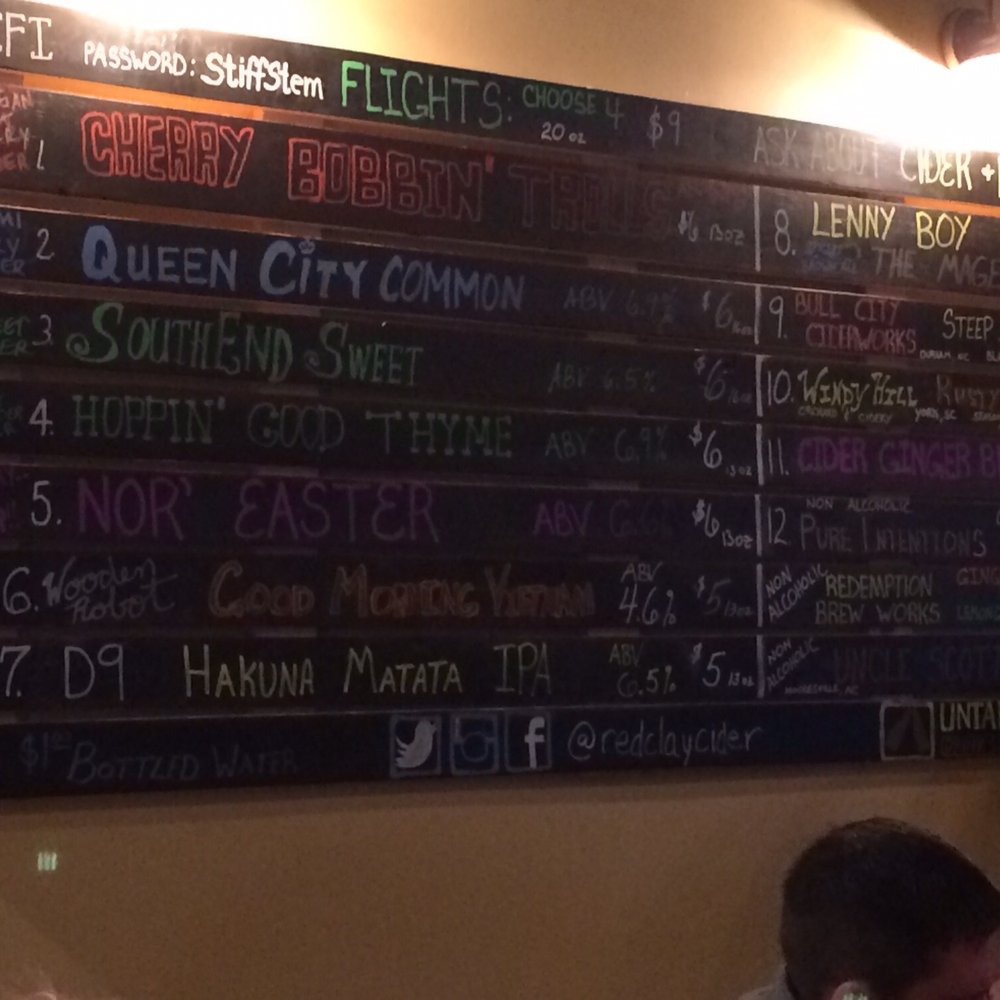 PASSWORD: StiffStem FLIGHTS: CHOOSE 4 $9
20 oz
ASK ABOUT CIDER +
1 CHERRY BOBBIN' TRILLS
$6 13oz
2 QUEEN CITY COMMON ABV 6.9% $6
3. SOUTHEND SWEET ABV 6.5% $6
4. HOPPIN' GOOD THYME ABV 6.9% $6 13oz
5. NOR' EASTER ABV $6 13oz
6. Wooden Robot GOOD MORNING VIETNAM ABV 4.6% $5 13oz
7. D9 HAKUNA MATATA IPA ABV 6.5% $5 13oz
$1.00 BOTTLED WATER
@redclaycider
8. LENNY BOY
THE
9. BULL CITY CIDERWORKS STEEP
DURHAM, NC
10. WINDY HILL RUSTY
ORCHARD & CIDERY YORK, SC
11. CIDER GINGER
NON ALCOHOLIC
12 PURE INTENTIONS
NON ALCOHOLIC REDEMPTION BREW WORKS
NON ALCOHOLIC UNCLE SCOT
MOORESVILLE, NC
UNTA